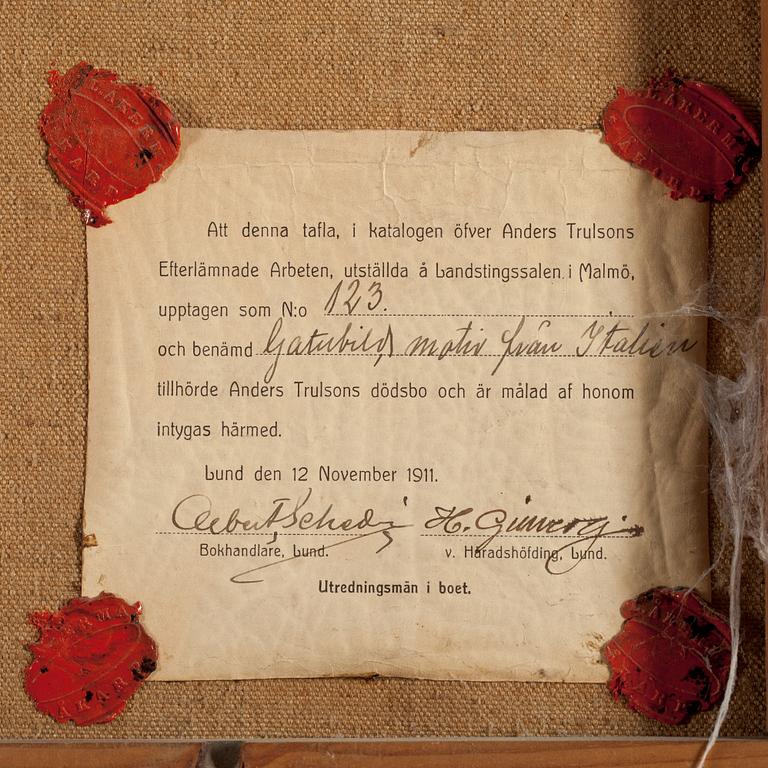 Att denna tafla, i katalogen öfver Anders Trulsons
Efterlämnade Arbeten, utställda å Landstingssalen i Malmö,
upptagen som N:o 123.
och benämd Gatubild, motiv från Italien
tillhörde Anders Trulsons dödsbo och är målad af honom
intygas härmed.
Lund den 12 November 1911.
Bokhandlare, Lund. v. Häradshöfding, Lund.
Utredningsmän i boet.